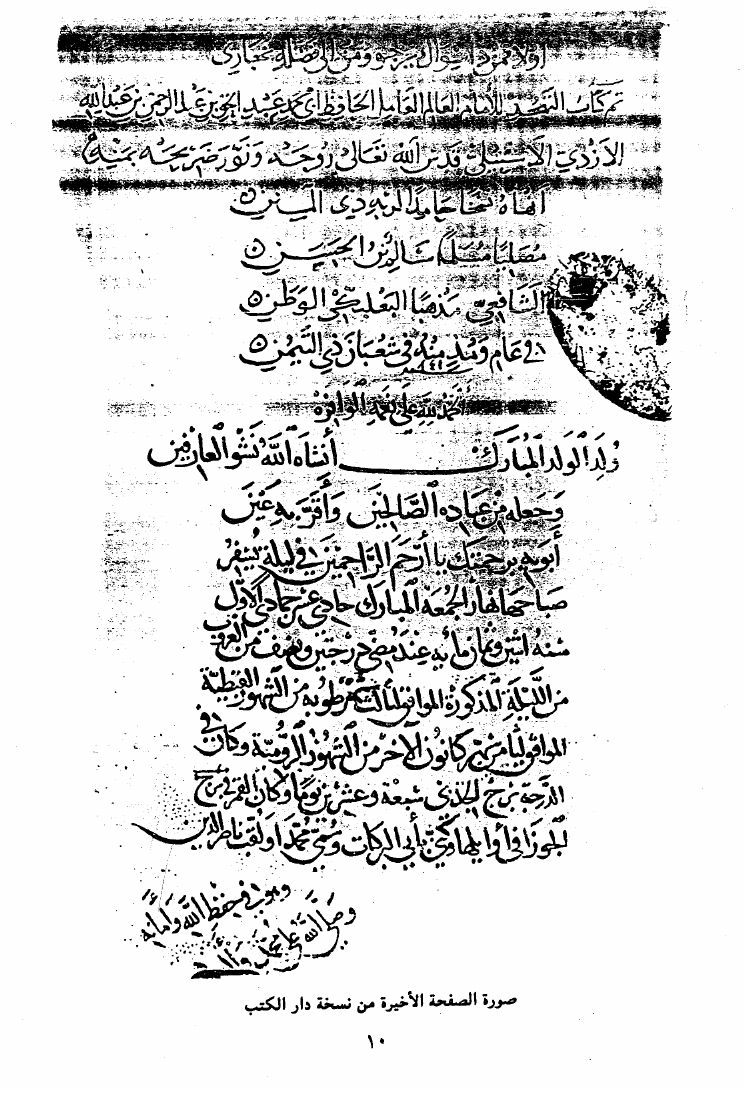 تم كتاب التهجد للإمام العالم العامل الحافظ أبي محمد عبد الحق بن عبد الرحمن بن عبد الله
الأزدي الإشبيلي قدس الله تعالى روحه ونور ضريحه بمنه
أنهاه حامدا لربه ذي المنن
مصليا مسلما الحسن
الشافعي مذهبا البعليكي الوطن
في عام في شعبان ذي اليمن
الحمد لله على نعمه الوافرة
ولد الولد المبارك أنشأه الله نشو العارفين
وجعله من عباده الصالحين وأقر به عين
أبويه برحمتك يا أرحم الراحمين في ليلة تسفر
صباحها نهار الجمعة المبارك حادي عشر جمادى الأول
سنة اثنين وثمان مايه عند مضي درجتين ونصف من الغروب
من الليلة المذكورة الموافق لثالث طوبه من الشهور القبطية
الموافق من شهر كانون الآخر من الشهور الرومية وكان في
الدرجة برج الجدي سبعة وعشرين يوما وكان القمر في برج
الجوزا في أوايلها وكني بأبي البركات وسمي محمدا ولقب ناصر الدين
وهو في حفظ الله وأمانه
وصلى الله على محمد وآله
صورة الصفحة الأخيرة من نسخة دار الكتب
١٠